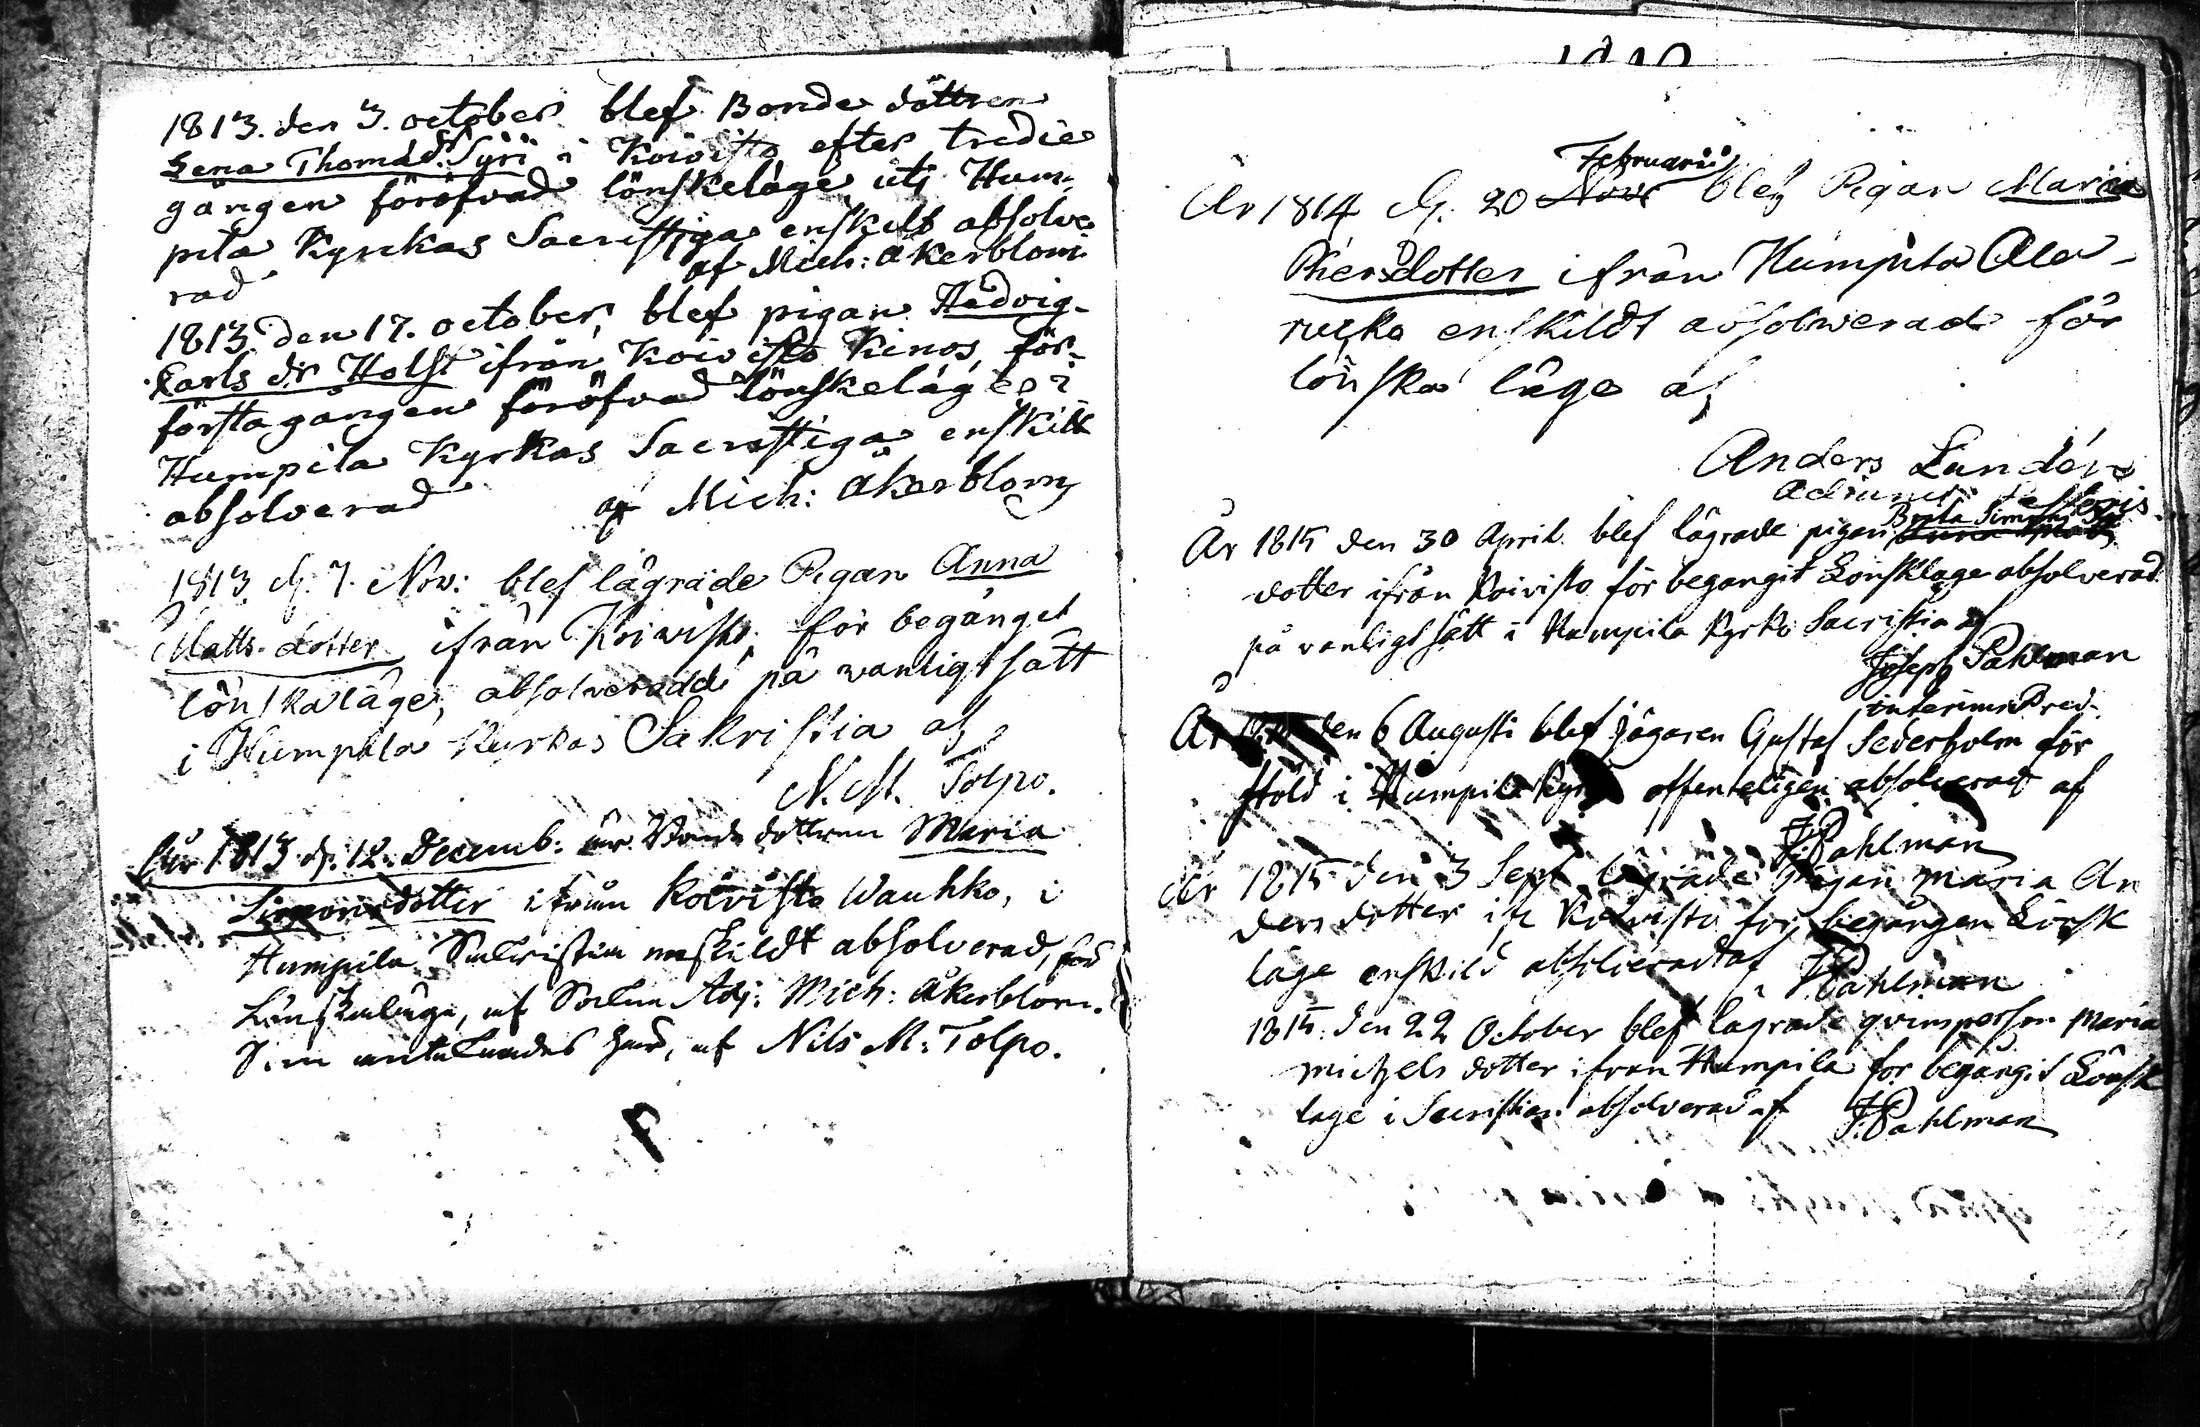 1813. den 3. october blef Bonde dottren
Lena Thomæ dr Syri i Koivisto efter tredie
gången föröfvad lönskeläge uti Hum-
pila Kyrckas Sacristiga enskilt absolve
rad af Mich: Åkerblom
1813 den 17. october, blef pigan Hedvig-
Karls dr Holst ifrån Koivisto Kinos, för-
första gången föröfvad lönskeläge i
Humpila Kyrkas Sacristiga enskilt
absolverad af Mich: Åkerblom
1813 d. 7. Nov: blef lägrade Pigan Anna
Matts-dotter ifrån Koiwisto, för begånget
lönskaläge, absolveradd på wanligt sätt
i Humpila Kyrkas Sakristia af
N. M. Tolpo.
År 1813 d. 12. Decemb: är Bonde dottren Maria
Simonsdotter ifrån Koivisto Wauhko, i
Humpila Sacristia enskildt absolverad, för
Lönskaläge, af Sockne Adj: Mich: Åkerblom.
Som antecknades här, af Nils M: Tolpo.
Februarii
År 1814 d. 20 Nov: blef Pigan Maria
Piersdotter ifrån Humpila Ala-
rucka enskildt absolwerad för
lönska läge af
Anders Lundén
Adjunct
Brita Simons
År 1815 den 30 April blef lägrade pigan
dotter ifrån Koivisto för begangit Lönskläge absolverad
på vanligt sätt i Humpila Kyrko Sacristia af
Joseph Pahlman
interims Pred.
År den 6 Augusti blef jägaren Gustaf Sederholm för
stöld i Humpila Kyrka offenteligen absolverad af
J. Pahlman
År 1815 den 3 Sept lägrade pigan maria An
ders dotter ifr Koivisto för begången Lönsk
läge enskild absolverad af J Pahlman
1815. den 22 October blef lägrade qvinsperson Maria
michels dotter ifran Humpila för begångit Lönsk
läge i Sacristian absolverad af J. Pahlman